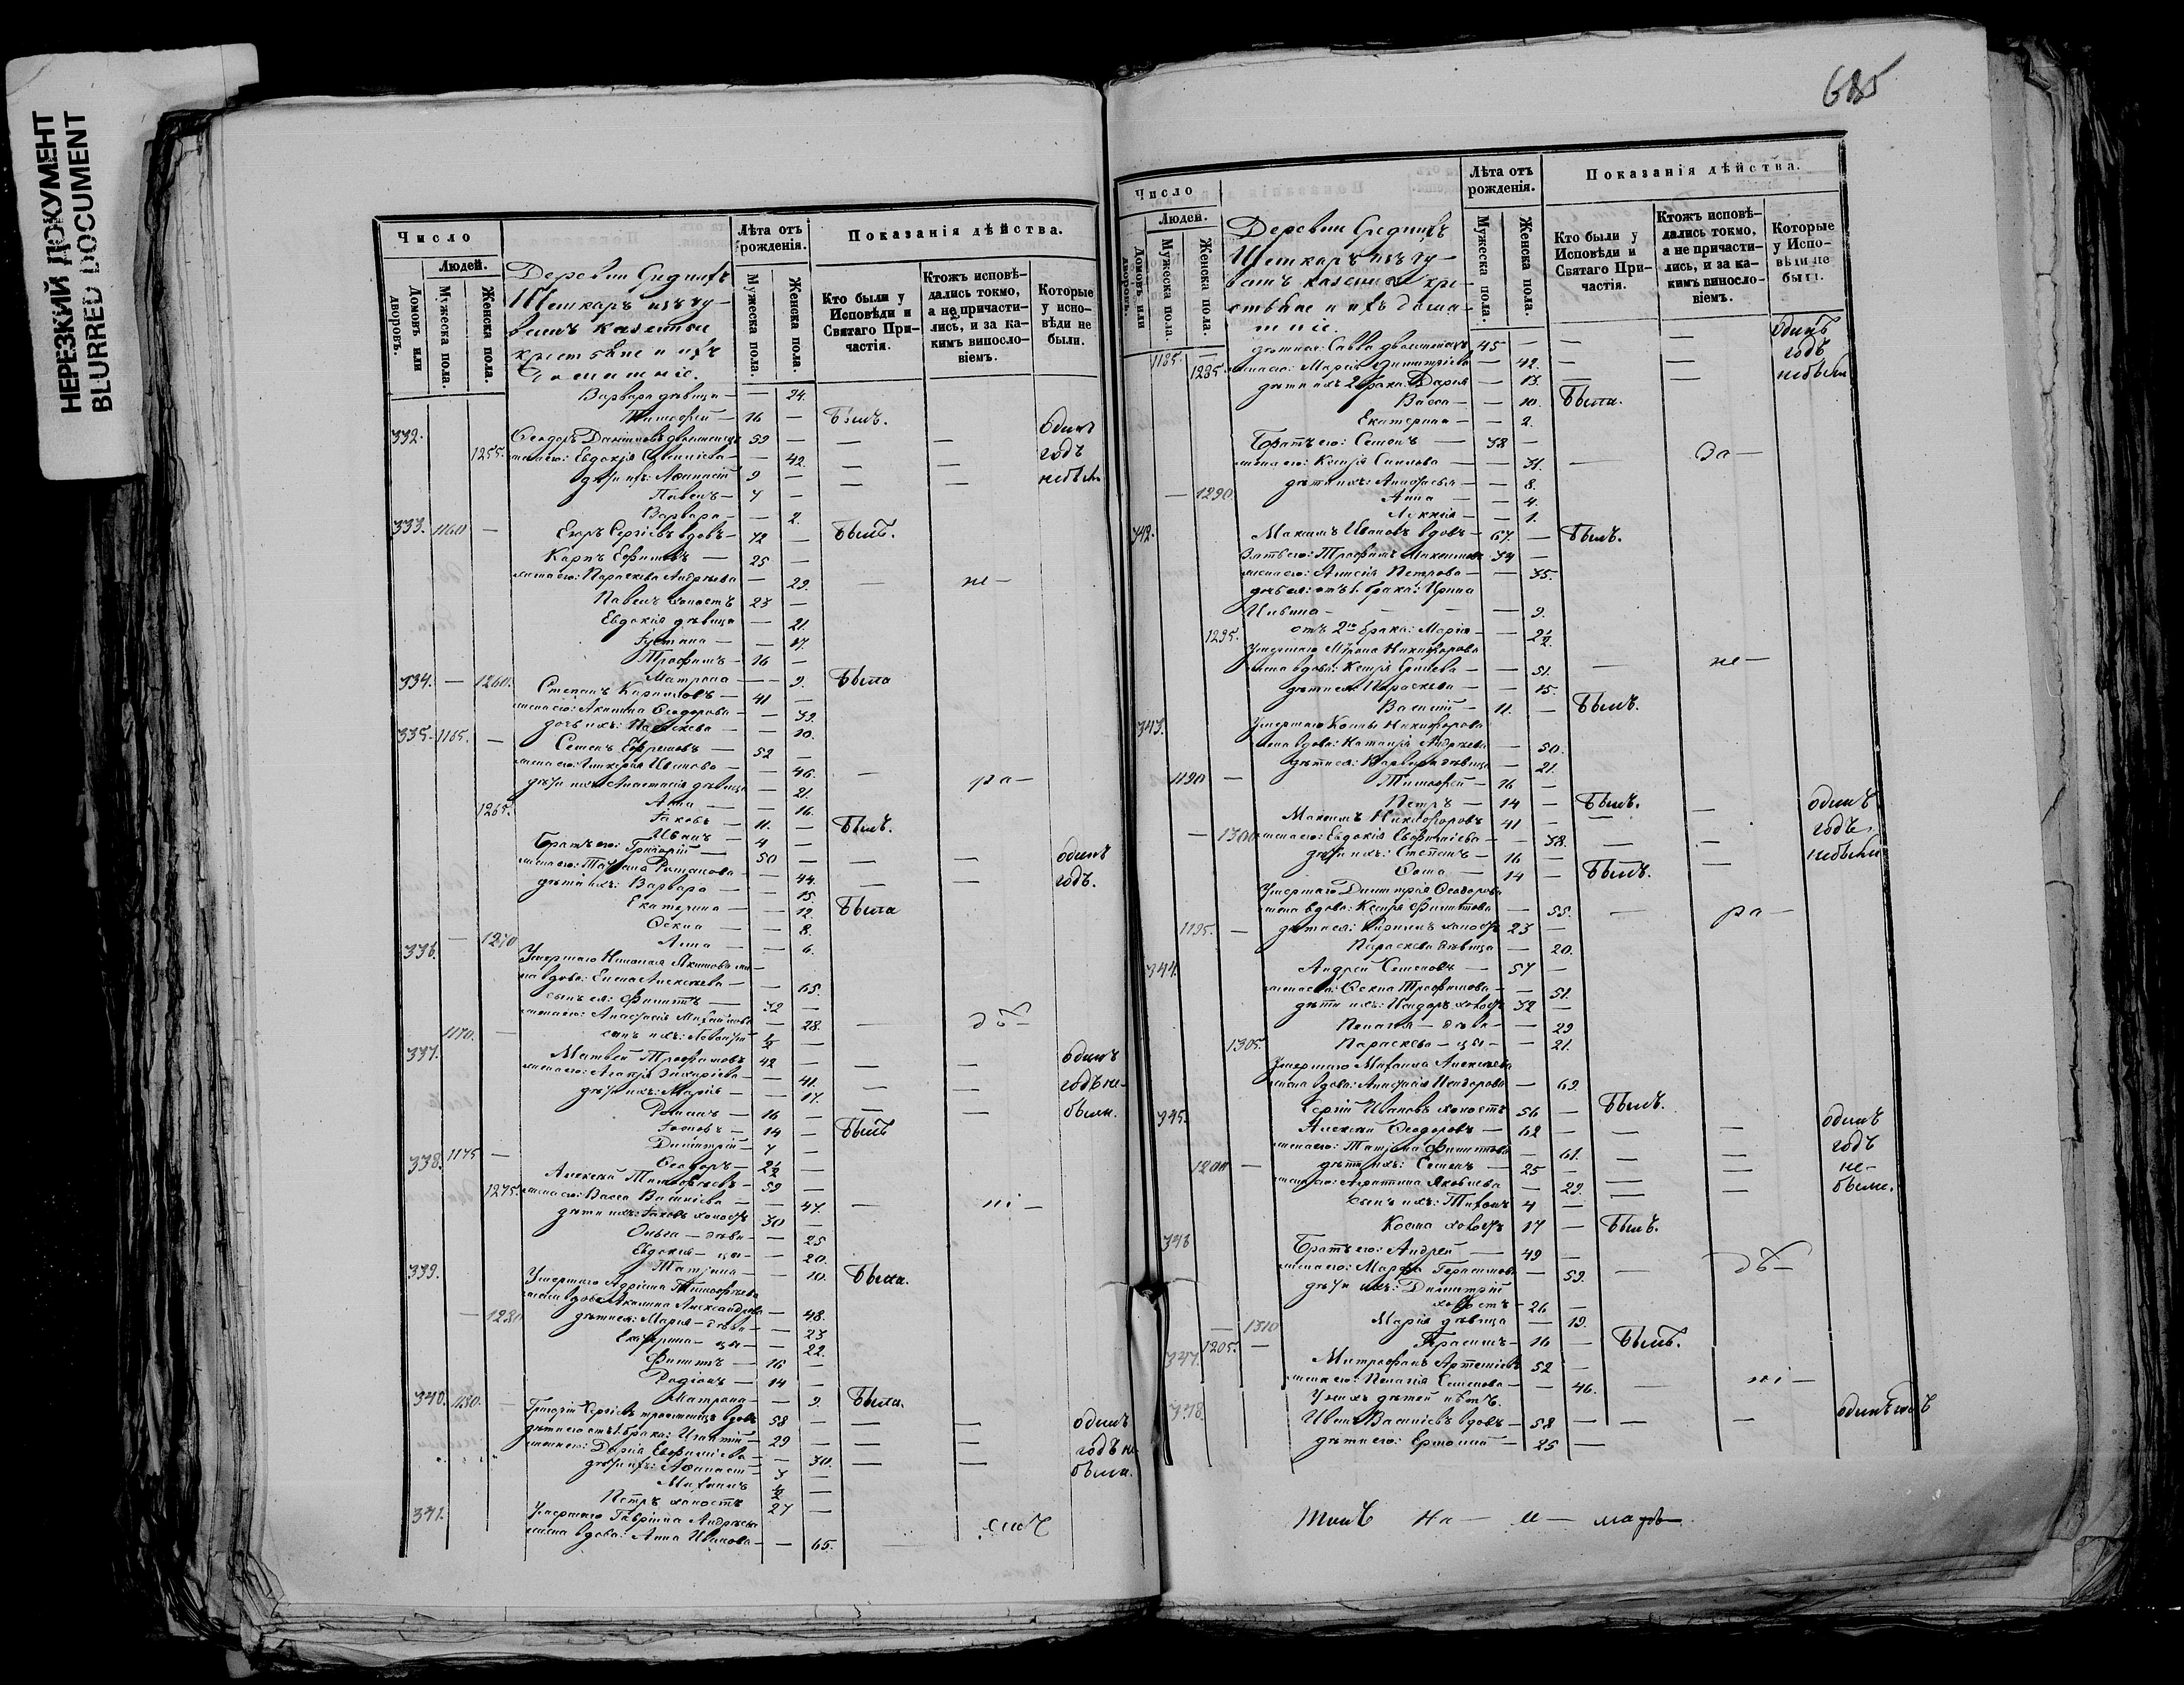 НЕРЕЗКИЙ ДОКУМЕНТ
BLURRED DOCUMENT
Число
Людей.
Домовъ или дворовъ.
Мужеска пола.
Женска пола.
Деревни Среднихъ
изъ чу-
вашъ казенные
крестьяне и ихъ
домашніе.
Лѣта отъ рожденія.
Мужеска пола.
Женска пола.
Показанія дѣйства.
Кто были у Исповѣди и Святаго При-частія.
Ктожъ исповѣ-дались токмо, а не причасти-лись, и за ка-кимъ виносло-віемъ.
Которые у испо-вѣди не были.
Варвара дѣвица — — 24.
Тимофей — 16 — Былъ.
332. Ѳеодоръ Даниловъ двоеженецъ 59 — — — Одинъ
1255. жена его: Евдокія — — 42. — — годъ
дѣти ихъ: Аѳанасій 9 — — — не были
Павелъ — 7 —
Варвара — — 2.
333. 1160 — Егоръ Сергѣевъ вдовъ — 72 — Былъ.
Карпъ Ефимовъ — 25 —
жена его: Параскева Андреева — 29. — не —
Павелъ холостъ 23 —
Евдокія дѣвица — 21.
— 17.
Трофимъ — 16 —
Матрона — — 9. Была
334. — 1260. Степанъ Кириловъ — 41 —
жена его: Акилина Ѳеодорова — — 39.
дочь ихъ: Параскева — — 10.
335. 1165. — Семенъ Ефремовъ — 52 —
жена его: Гликерія Иванова — — 46. — ра —
дѣти ихъ: Анастасія дѣвица — 21.
1265. Анна — — 16.
Іаковъ — 11. — Былъ.
Иванъ — 4 —
Братъ его: Григорій — 50 — — — одинъ
жена его: Татіана Романова — — 44. — — годъ.
дѣти ихъ: Варвара — — 15.
Екатерина — — 12. Была
Ѳекла — — 8.
— 1270 Анна — — 6.
336. Умершаго Николая Якимова же-
на вдова: Елена Алексѣева — — 65.
сынъ ея: Филиппъ — 32 —
жена его: Анастасія Михайлова — 28. —
1170. — сынъ ихъ: ½ —
337. Матвей Трофимовъ 42 — — — одинъ
жена его: Агапія Захаріева — — 41. — — годъ не-
дѣти ихъ: Марія — — 17. — — были.
Романъ — 16 —
Іаковъ — 14 — Былъ
Димитрій — 7 —
1175 — Ѳеодоръ — 2½ —
338. Алексѣй Тимофеевъ — 59 —
1275. жена его: Васса Васильева — — 47. — ні —
дѣти ихъ: Іаковъ холостъ 30 —
Ольга — дѣви — — 25
Евдокія — цы — — 20.
Татіана — — 10. Была.
339. Умершаго Адріана Тимофеева
жена вдова Акилина Александрова — 48.
— 1280 дѣти ея: Марія — дѣви — — 23
Екатерина — цы — — 22.
Филиппъ — 16 —
Родіонъ — 14 —
Матрона — — 9. Была.
340. 1180. — Григорій Сергѣевъ троеженецъ вдовъ 58 — — — одинъ
дѣти его отъ 1. брака: Игнатій — 29 — — — годъ не
жена его: Дарія Евфиміева — — 30. — — были.
дѣти ихъ: Аѳанасій — 3 —
Михаилъ ½ —
Петръ холостъ 27 —
341. Умершаго Гавріила Андреева
жена вдова: Анна Иванова — — 65. —
685
Число
Людей.
Домовъ или дворовъ.
Мужеска пола
Женска пола.
Деревни Среднихъ
изъ чу-
вашъ казенные кре-
стьяне и ихъ дома-
шніе.
Лѣта отъ рожденія.
Мужеска пола.
Женска пола.
Показанія дѣйства.
Кто были у Исповѣди и Святаго При-частія.
Ктожъ исповѣ-дались токмо, а не причасти-лись, и за ка-кимъ виносло-віемъ.
Которые у Испо-вѣди не были.
1185. — дѣти ея: Савва двоеженецъ 45 — — — Одинъ
1285. жена его: Марія Димитріева — 42. — — годъ
дѣти ихъ 2 брака: Дарія — 13. — — не были
Васса — — 10. Была.
Екатерина — — 2.
Братъ его: Семенъ — 38 —
жена его: Ксенія — — 31. — да —
дѣти ихъ: Анастасія — — 8.
— 1290. Анна — — 4.
— — 1.
342. Максимъ Ивановъ вдовъ — 67. — Былъ.
Зять его: Трофимъ Максимовъ 34 —
жена его: Алисія Петрова — — 35.
дочь ея: отъ 1. брака: Ирина
Ильина — — 9.
1295. отъ 2го брака: Марія — — 2½
Умершаго Никифорова
жена вдова: — 51. — не —
дѣти ея: Параскева — — 15.
Василій — 11. — Былъ.
343. Умершаго Космы Никифорова
жена вдова: Андреева — 50.
дѣти ея: Варвара дѣвица — 21.
1190 — Тимофей — 16 —
Петръ — 14 — Былъ. — одинъ
Максимъ Никифоровъ 41 — — годъ
— 1300 жена его: Евдокія Евфиміева — — 38. — — не были
дѣти ихъ: Степанъ — 16 — —
Ѳома — 14 — Былъ.
Умершаго Димитрія Ѳеодорова
жена вдова: Филиппова — 55. — ра —
1195. — дѣти ея: Кирилъ холостъ 23 —
Параскева дѣвица — 20.
344. Андрей Семеновъ — 57 —
жена его: Ѳекла Трофимова — — 51.
дѣти ихъ: Исидоръ холостъ 32 —
Пелагія — дѣви — — 29
1305. Параскева — цы — — 21.
Умершаго Михаила Алексѣева
жена вдова: Анастасія Исидорова — 69.
Сергій Ивановъ холостъ 56 — Былъ.
345. Алексѣй Ѳеодоровъ — 62 — — — одинъ
жена его: Татіана Филиппова — 61. — — годъ
1200 — дѣти ихъ: Семенъ — 25 — — — не-
жена его: Яковлева — 29. — — были.
сынъ ихъ: Тихонъ 4 —
Косма холостъ 17 — Былъ.
346 Братъ его: Андрей — 49 —
жена его: Марфа Герасимова — 59. —
дѣти ихъ: Димитрій
холостъ — 26 —
— 1310 Марія дѣвица — 19.
1205. — Герасимъ — 16 — Былъ.
347. Митрофанъ Артемьевъ 52 —
жена его: Пелагія Семенова — — 46. — ні —
У нихъ дѣтей нѣтъ.
348. Иванъ Васильевъ вдовъ — 58 — — — одинъ годъ
дѣти его: Ермолай — 25 —